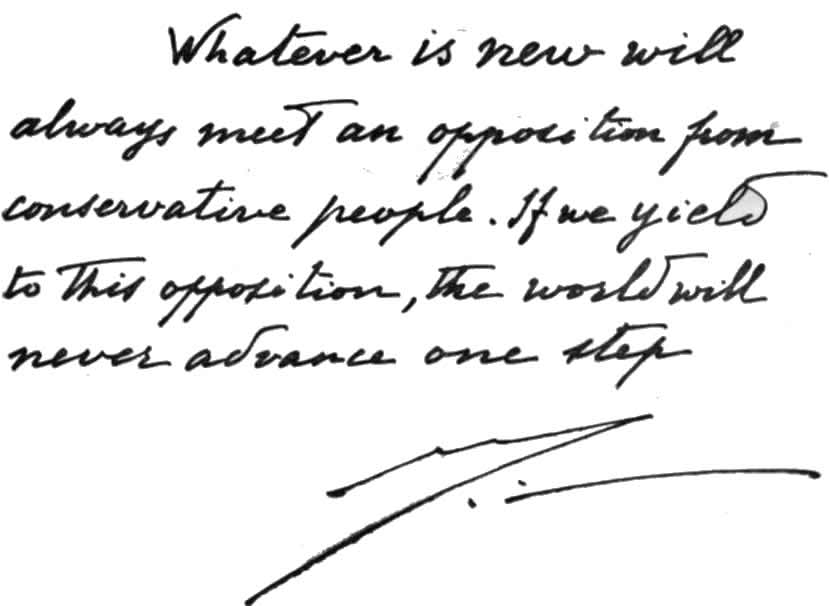 Whatever is new will
always meet an opposition from
conservative people. If we yield
to this opposition, the world will
never advance one step